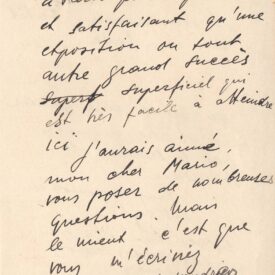 et satisfaisant qu'une
exposition ou tout
autre grand succès
superf superficiel qui
est très facile à atteindre
ici j'aurais aimé,
mon cher Mario,
vous poser de nombreuses
questions. Mais
le mieux c'est que
vous m'écriviez